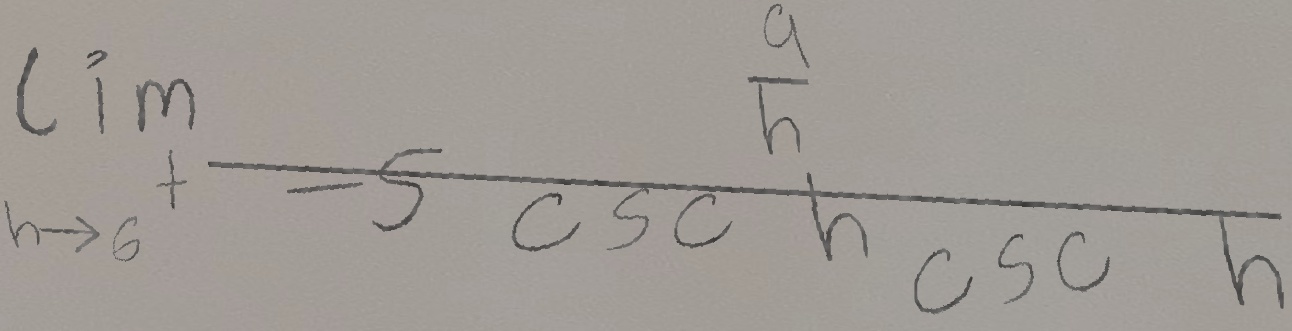 lim h→6^+ \frac{\frac{9}{h}}{-5 csc h csc h}